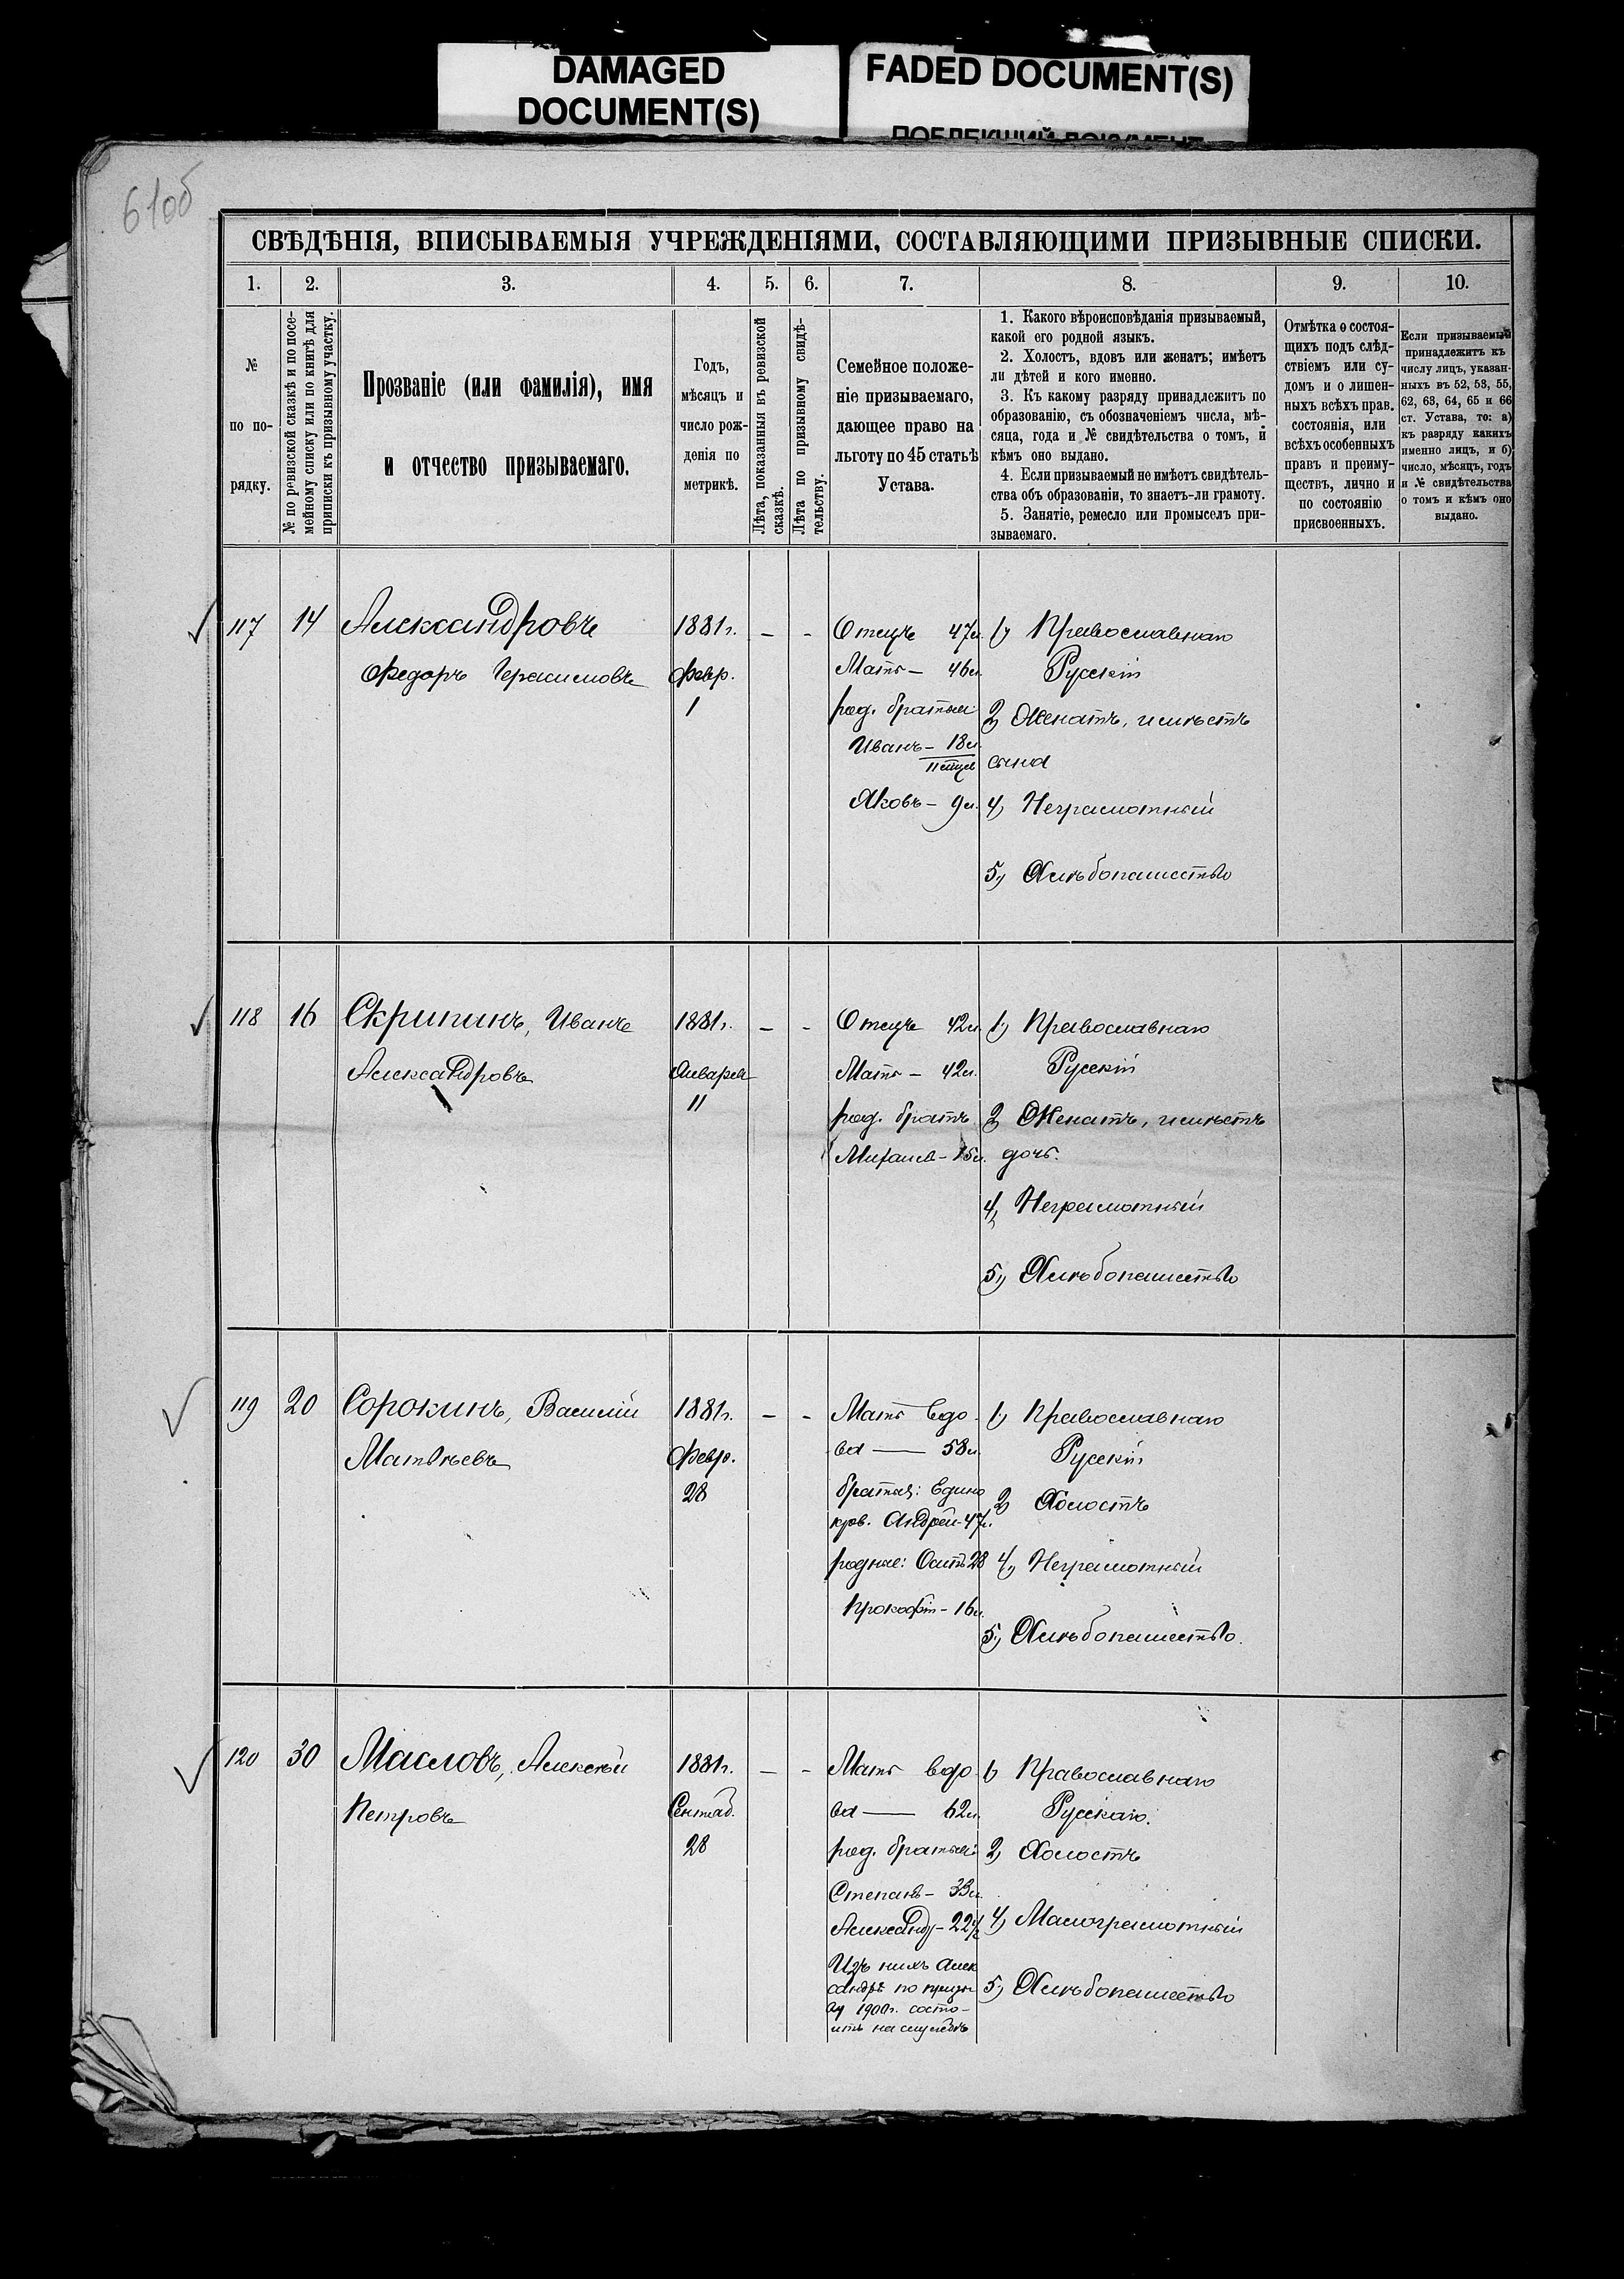 DAMAGED
DOCUMENT(S)
FADED DOCUMENT(S)
ПОБЛЕКШИЙ ДОКУМЕНТ
61об
СВѢДѢНІЯ, ВПИСЫВАЕМЫЯ УЧРЕЖДЕНІЯМИ, СОСТАВЛЯЮЩИМИ ПРИЗЫВНЫЕ СПИСКИ.
1. 2. 3. 4. 5. 6. 7. 8. 9. 10.
№
по по-
рядку.
№ по ревизской сказкѣ и по посе-
мейному списку или по книгѣ для
приписки къ призывному участку.
Прозваніе (или фамилія), имя
и отчество призываемаго.
Годъ,
мѣсяцъ и
число рож-
денія по
метрикѣ.
Лѣта, показанныя въ ревизской
сказкѣ.
Лѣта по призывному свидѣ-
тельству.
Семейное положе-
ніе призываемаго,
дающее право на
льготу по 45 статьѣ
Устава.
1. Какого вѣроисповѣданія призываемый,
какой его родной языкъ.
2. Холостъ, вдовъ или женатъ; имѣетъ
ли дѣтей и кого именно.
3. Къ какому разряду принадлежитъ по
образованію, съ обозначеніемъ числа, мѣ-
сяца, года и № свидѣтельства о томъ, и
кѣмъ оно выдано.
4. Если призываемый не имѣетъ свидѣтель-
ства объ образованіи, то знаетъ-ли грамоту.
5. Занятіе, ремесло или промыселъ при-
зываемаго.
Отмѣтка о состоя-
щихъ подъ слѣд-
ствіемъ или су-
домъ и о лишен-
ныхъ всѣхъ прав.
состоянія, или
всѣхъ особенныхъ
правъ и преиму-
ществъ, лично и
по состоянію
присвоенныхъ.
Если призываемый
принадлежитъ къ
числу лицъ, указан-
ныхъ въ 52, 53, 55,
62, 63, 64, 65 и 66
ст. Устава, то: а)
къ разряду какихъ
именно лицъ, и б)
число, мѣсяцъ, годъ
и № свидѣтельства
о томъ и кѣмъ оно
выдано.
117 14 Александровъ
Федоръ Герасимовъ
1881г.
Февр.
1
— -
Отецъ 47л.
Мать — 46л.
род. братья:
Иванъ — 18л.
Яковъ — 9л.
1) Православнаго
Русскій
2) Женатъ, имѣетъ
сына
4) Неграмотный
5) Хлѣбопашество
118 16 Скрипинъ, Иванъ
Александровъ
1881г.
Января
11
— -
Отецъ 42л.
Мать — 42л.
род. братъ
Михаилъ — 15л.
1) Православнаго
Русскій
2) Женатъ, имѣетъ
дочь.
4) Неграмотный
5) Хлѣбопашество
119 20 Сорокинъ, Василій
Матвѣевъ
1881г.
Февр.
28
— -
Мать вдо-
ва — 58л.
братья: едино
кров. Андрей — 47л.
родные: 28
Прокофій — 16л.
1) Православнаго
Русскій
2) Холостъ
4) Неграмотный
5) Хлѣбопашество.
120 30 Масловъ, Алексѣй
Петровъ
1881г.
Сентяб.
28
— -
Мать вдо-
ва — 62л.
род. братья:
Степанъ — 33л.
Александръ — 22 1/2
Изъ нихъ Алек
сандръ по призы
ву 1900г. состо-
итъ на службѣ
1) Православнаго
Русскаго.
2) Холостъ
4) Малограмотный
5) Хлѣбопашество